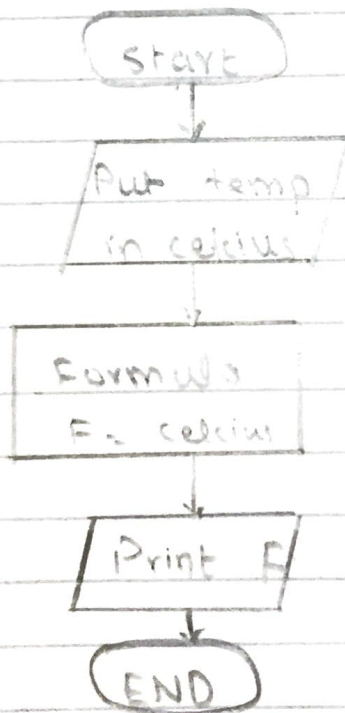 Start
Put temp
in celcius
Formula
F = celcius
Print F
END